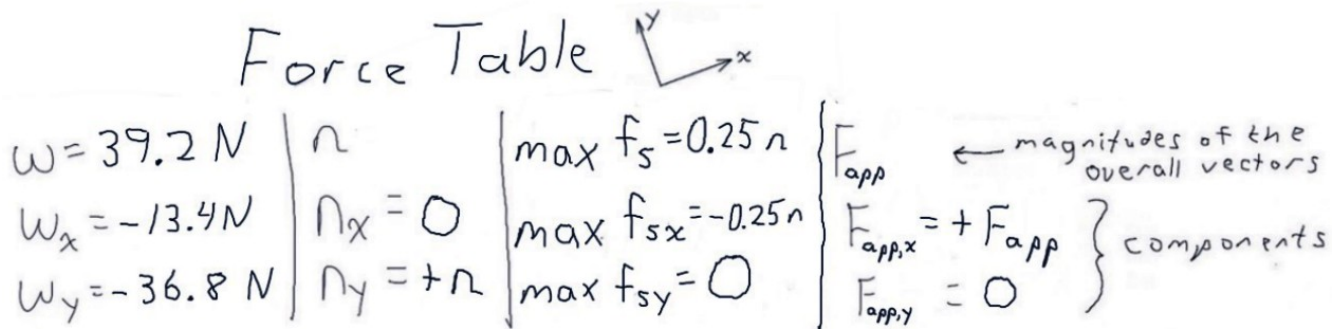 Force Table y x
w = 39.2 N | n | max fs = 0.25 n | Fapp ← magnitudes of the overall vectors
wx = -13.4 N | nx = 0 | max fsx = -0.25 n | Fapp,x = + Fapp } components
wy = -36.8 N | ny = + n | max fsy = 0 | Fapp,y = 0